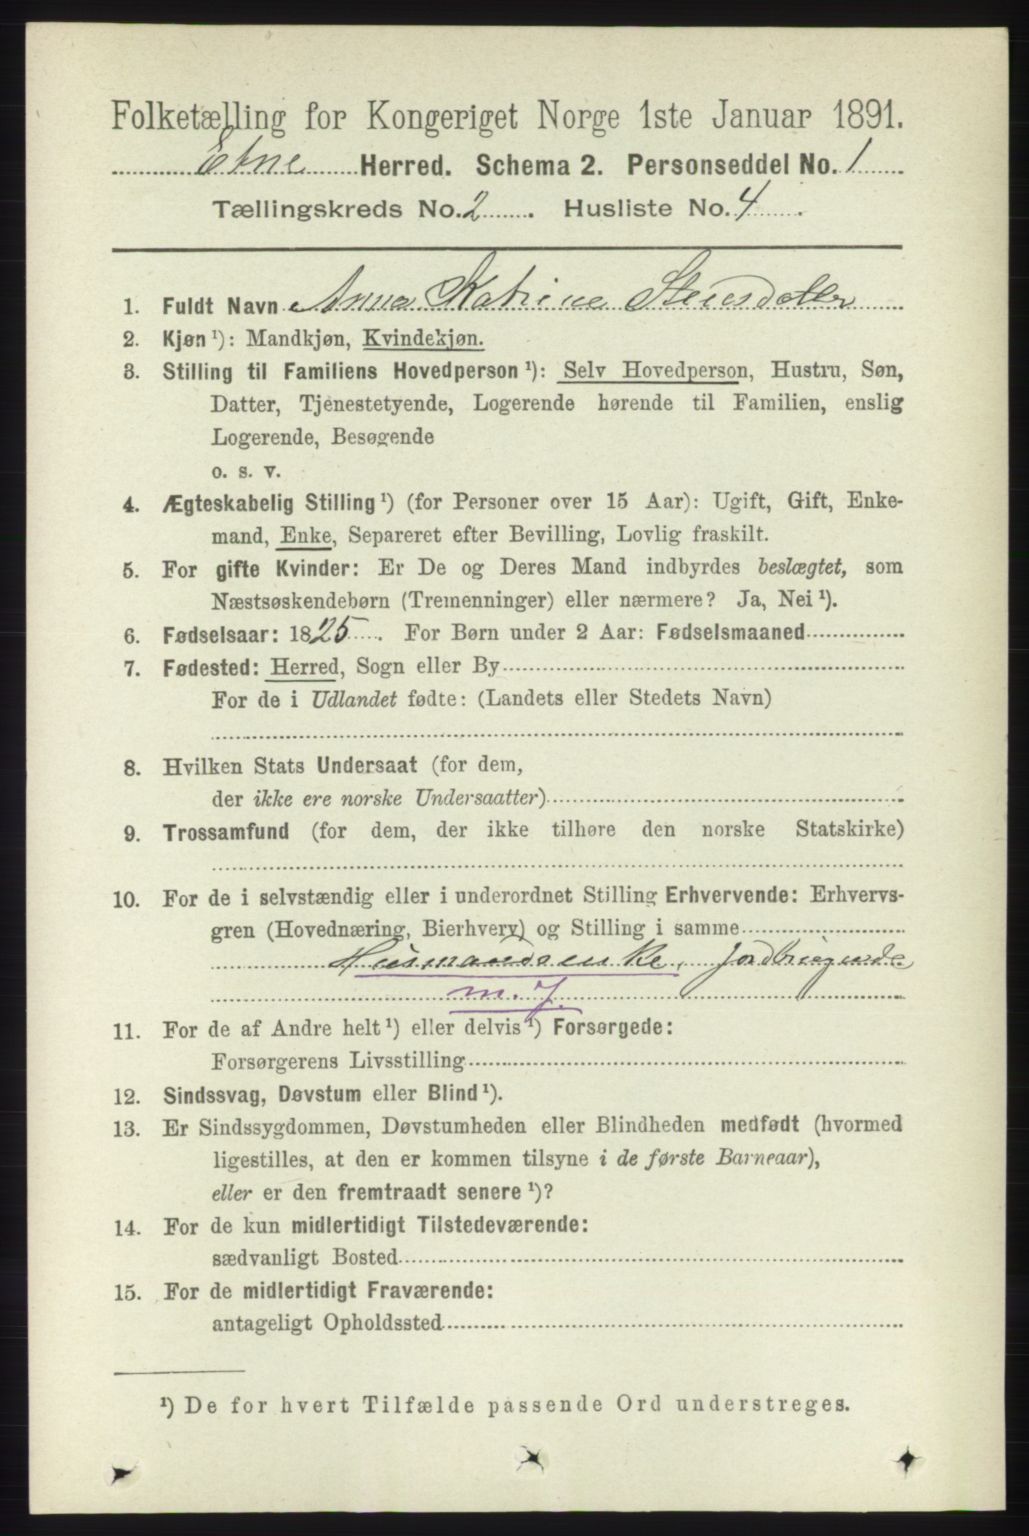 Folketælling for Kongeriget Norge 1ste Januar 1891.
Etne Herred. Schema 2. Personseddel No. 1
Tællingskreds No. 2. Husliste No. 4.
1. Fuldt Navn Anna Katrine Steinsdatter
2. Kjøn ¹): Mandkjøn, Kvindekjøn.
3. Stilling til Familiens Hovedperson ¹): Selv Hovedperson, Hustru, Søn,
Datter, Tjenestetyende, Logerende hørende til Familien, enslig
Logerende, Besøgende
o. s. v.
4. Ægteskabelig Stilling ¹) (for Personer over 15 Aar): Ugift, Gift, Enke-
mand, Enke, Separeret efter Bevilling, Lovlig fraskilt.
5. For gifte Kvinder: Er De og Deres Mand indbyrdes beslægtet, som
Næstsøskendebørn (Tremenninger) eller nærmere? Ja, Nei ¹).
6. Fødselsaar: 1825. For Børn under 2 Aar: Fødselsmaaned
7. Fødested: Herred, Sogn eller By
For de i Udlandet fødte: (Landets eller Stedets Navn)
8. Hvilken Stats Undersaat (for dem,
der ikke ere norske Undersaatter)
9. Trossamfund (for dem, der ikke tilhøre den norske Statskirke)
10. For de i selvstændig eller i underordnet Stilling Erhvervende: Erhvervs-
gren (Hovednæring, Bierhverv) og Stilling i samme
Husmandsenke, Jordbrugende
m. J.
11. For de af Andre helt ¹) eller delvis ¹) Forsørgede:
Forsørgerens Livsstilling
12. Sindssvag, Døvstum eller Blind ¹).
13. Er Sindssygdommen, Døvstumheden eller Blindheden medfødt (hvormed
ligestilles, at den er kommen tilsyne i de første Barneaar),
eller er den fremtraadt senere ¹)?
14. For de kun midlertidigt Tilstedeværende:
sædvanligt Bosted
15. For de midlertidigt Fraværende:
antageligt Opholdssted
¹) De for hvert Tilfælde passende Ord understreges.